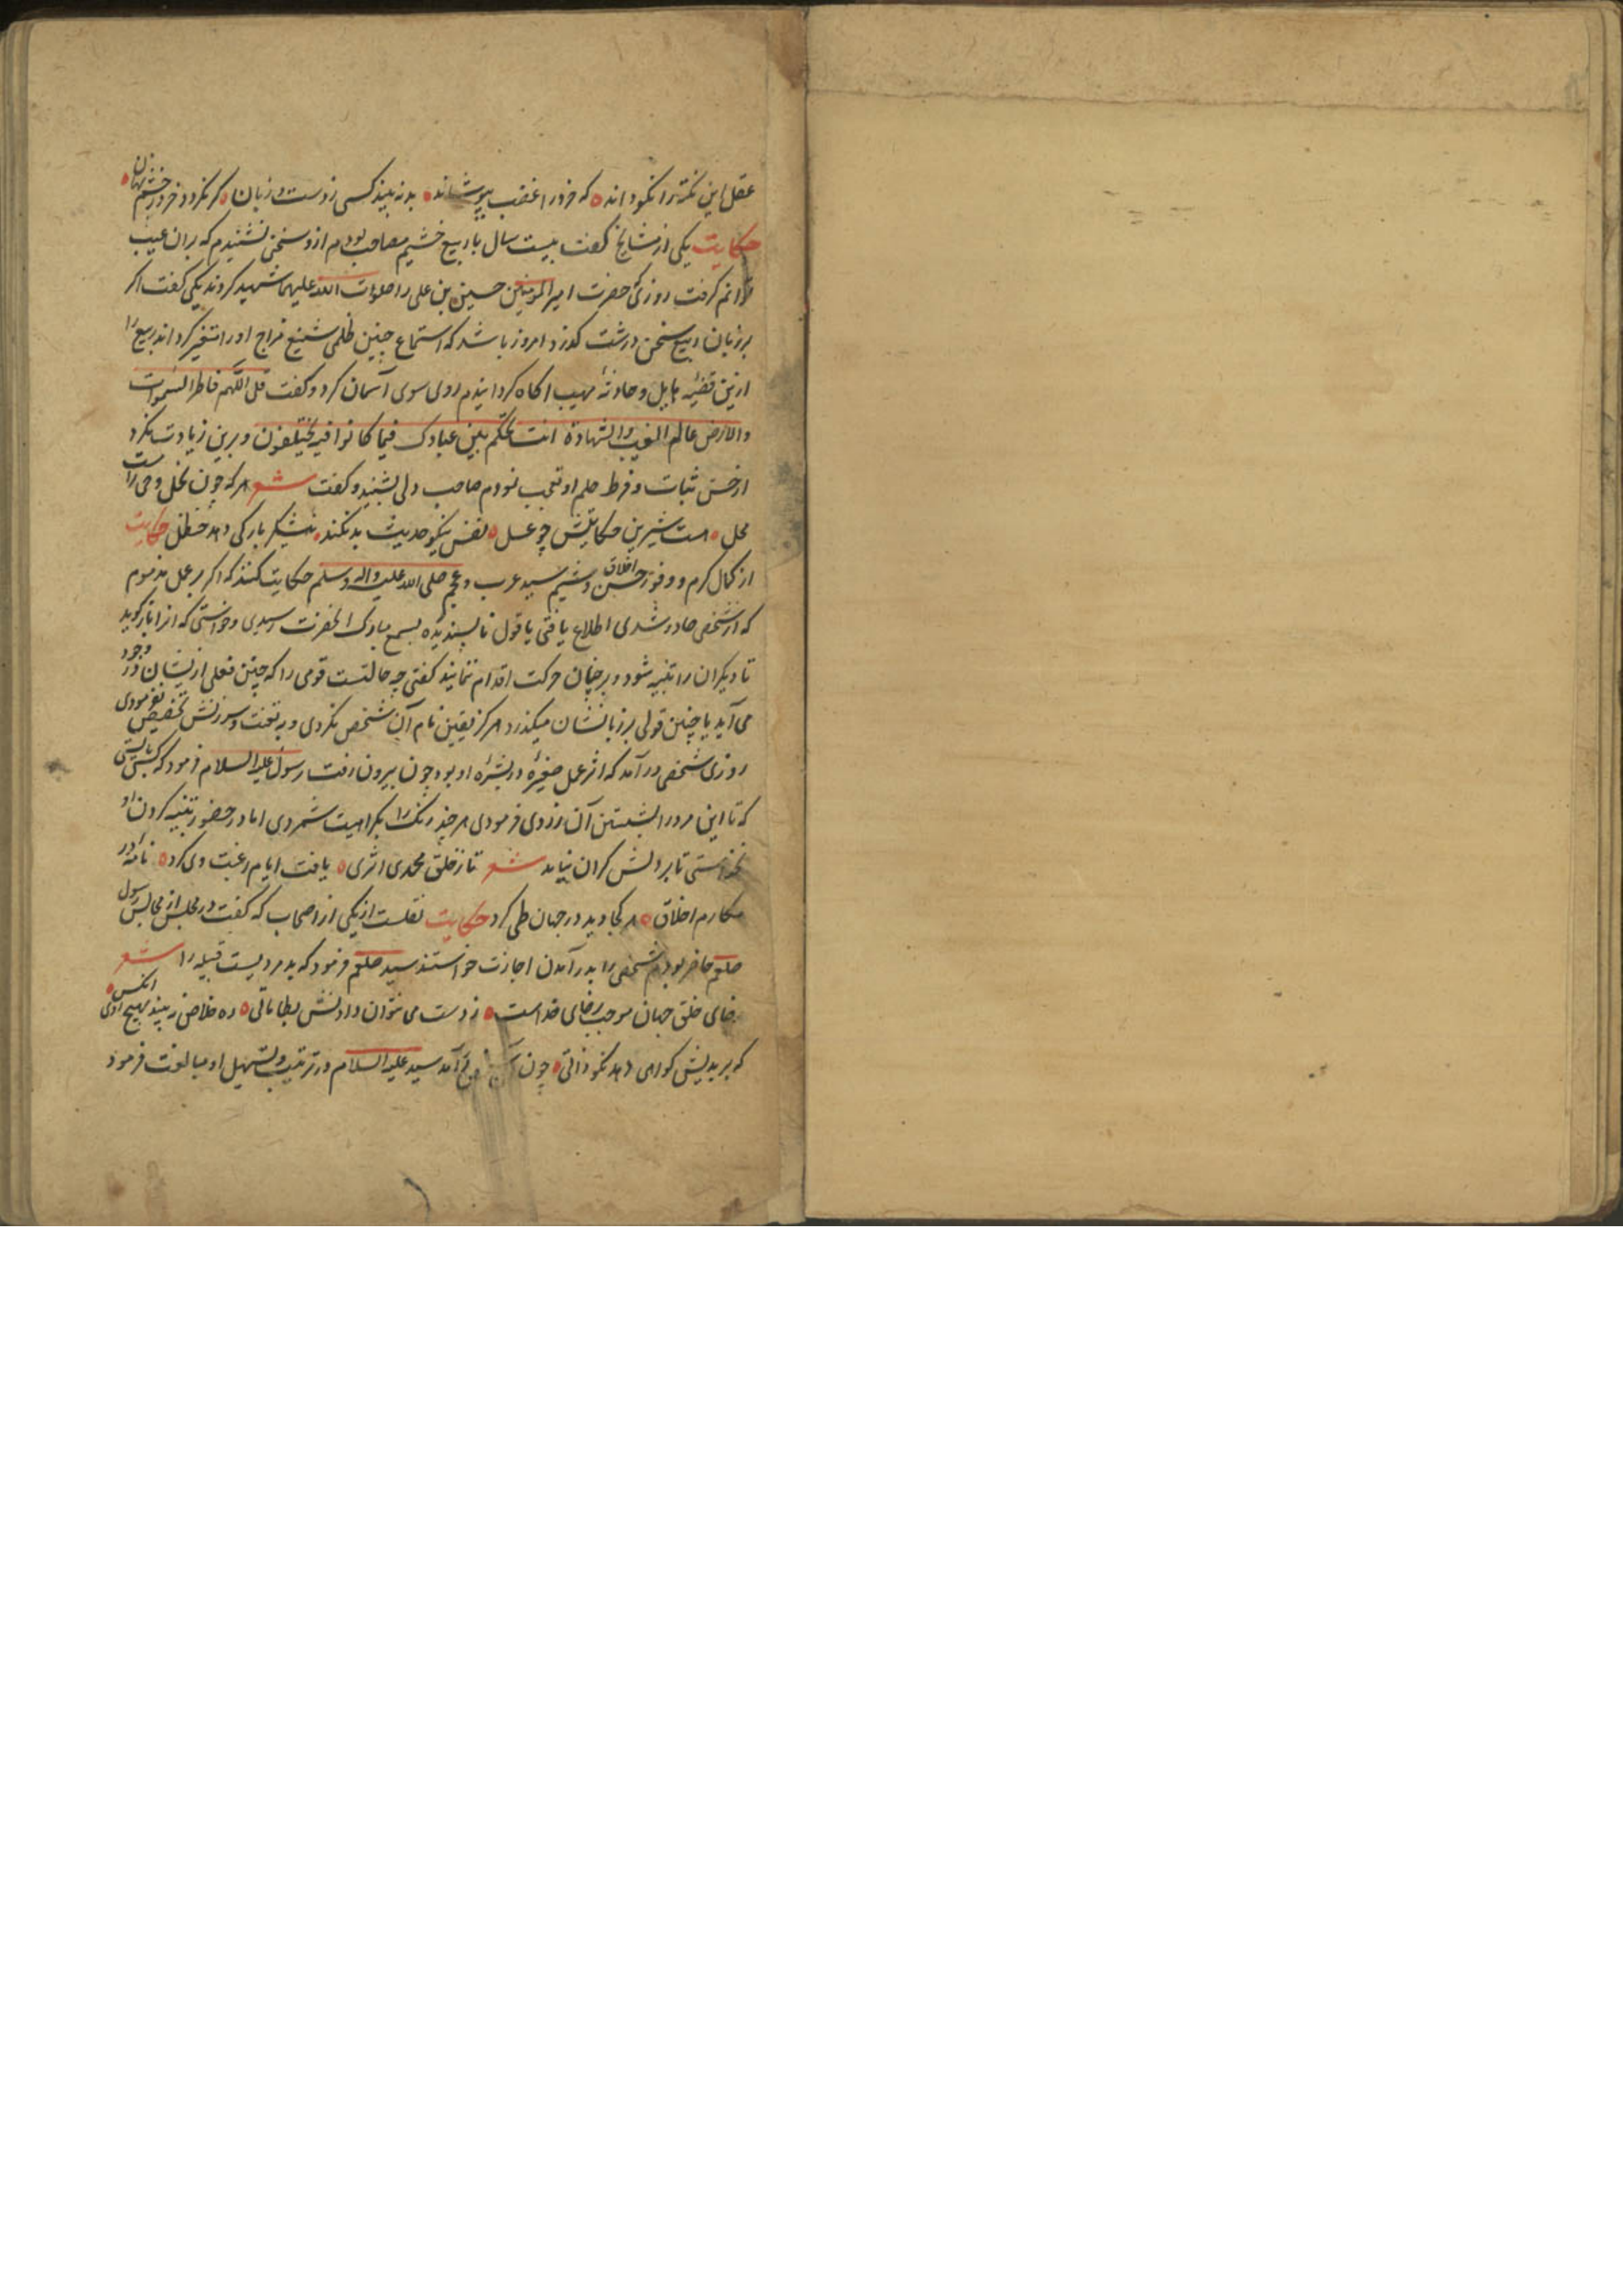 عقل این نکته را نکو داند که خرد را غضب بپوشاند بد نه بیند کسی ز دست و زبان گر نگردد خرد ز خشم نهان
حکایت یکی از مشایخ گفت بیست سال با ربیع خثیم مصاحب بودم ازو سخنی نشنیدم که بران عیب
توانم گرفت روزی که حضرت امیر المومنین حسین بن علی را صلوات الله علیهما شهید کردند یکی گفت اگر
بر زبان ربیع سخن درشت گذرد امروز باشد که استماع چنین ظلمی شنیع مزاج او را متغیر گرداند ربیع را
ازین قضیه هایل و حادثه مهیب اگاه گردانیدم روی سوی آسمان کرد و گفت قل اللهم فاطر السموات
والارض عالم الغیب والشهادة انت تحکم بین عبادک فیما کانوا فیه یختلفون و برین زیادت نکرد
از حسن ثبات و فرط حلم او تعجب نمودم صاحب دلی بشنید و گفت شعر هر که چون نحل وحی راست
محل هست شیرین حکایتش چو عسل نفس نیکو حدیث بد نکند نیشکر بار کی دهد حنظل حکایت
از کمال کرم و وفور حسن اخلاق و شیم سید عرب و عجم صلی الله علیه واله وسلم حکایت کنند که اگر بر عمل مذموم
که از شخصی صادر شدی اطلاع یافتی یا قول ناپسندیده بسمع مبارک انحضرت رسیدی و خواستی که انرا باز گوید
تا دیگران را تنبیه شود و بر چنان حرکت اقدام ننمایند گفتی چه حالتست قومی را که چنین فعلی ازیشان در وجود
می آید یا چنین قولی بر زبانشان میگذرد هرگز تعیین نام آن شخص نکردی و به تعنت و سرزنش تخصیص نفرمودی
روزی شخصی درآمد که اثر عمل صغیره در بشره او بود چون بیرون رفت رسول علیه السلام فرمود که کسی بایستی
که تا این مرد را بشستن آن زردی فرمودی هر چند رنگ را بکراهیت شمردی اما در حضور تنبیه کردن او
نخواستی تا بر دلش گران نیاید شعر تا ز خلق محمدی اثری یافت ایام رغبت وی کرد نامه در
مکارم اخلاق هر کجا دید در جهان طی کرد حکایت نقلست از یکی از اصحاب که گفت در مجلس از مجالس رسول
صلعم حاضر بودم شخصی را بدر آمدن اجازت خواستند سید صلعم فرمود که بد مردیست قبیله را شعر
رضای خلق جهان موجب رضای خداست ز دست می نتوان دادنش بطاماتی ره خلاص نه بیند بهیچ روی انکس
که بر بدیش گواهی دهد نکو ذاتی چون آمد سید علیه السلام در ترتیب و تسهیل او مبالغت فرمود